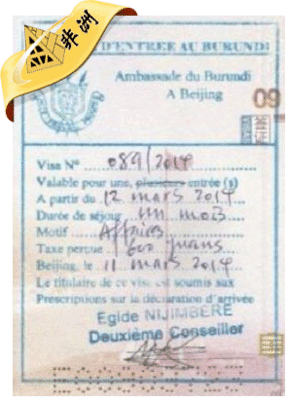 非洲
D'ENTREE AU BURUNDI
Ambassade du Burundi
A Beijing
09
Visa N° 089/2014
Valable pour une, plusieurs entrée (s)
A partir du 12 mars 2014
Durée de séjour un mois
Motif Affaires
Taxe perçue 600 yuans
Beijing, le 11 mars 2014
Le titulaire de ce visa est soumis aux
Prescriptions sur la déclaration d'arrivée
Egide NIJIMBERE
Deuxième Conseiller